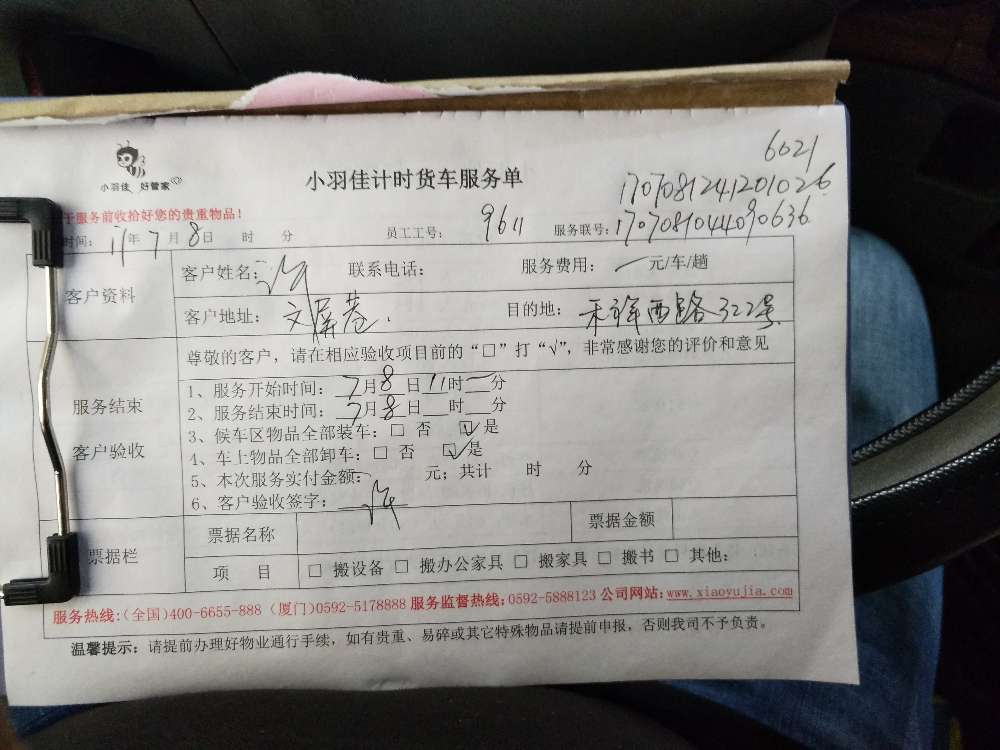 6021
小羽佳 好管家
小羽佳计时货车服务单
1707081241201026
于服务前收拾好您的贵重物品!
时间: 17年7月8日 时 分 员工工号: 9611 服务联号: 1707081044090636
客户资料
客户姓名: 联系电话: 服务费用: 元/车/趟
客户地址: 文屏巷. 目的地: 禾祥西路322号
尊敬的客户，请在相应验收项目前的“□”打“√”，非常感谢您的评价和意见
服务结束
客户验收
1、服务开始时间: 7月8日11时 分
2、服务结束时间: 7月8日 时 分
3、候车区物品全部装车: □ 否 ☑ 是
4、车上物品全部卸车: □ 否 ☑ 是
5、本次服务实付金额: 元; 共计 时 分
6、客户验收签字:
票据栏
票据名称 票据金额
项 目 □ 搬设备 □ 搬办公家具 □ 搬家具 □ 搬书 □ 其他:
服务热线:(全国)400-6655-888 (厦门)0592-5178888 服务监督热线:0592-5888123 公司网站:www.xiaoyujia.com
温馨提示: 请提前办理好物业通行手续，如有贵重、易碎或其它特殊物品请提前申报，否则我司不予负责。